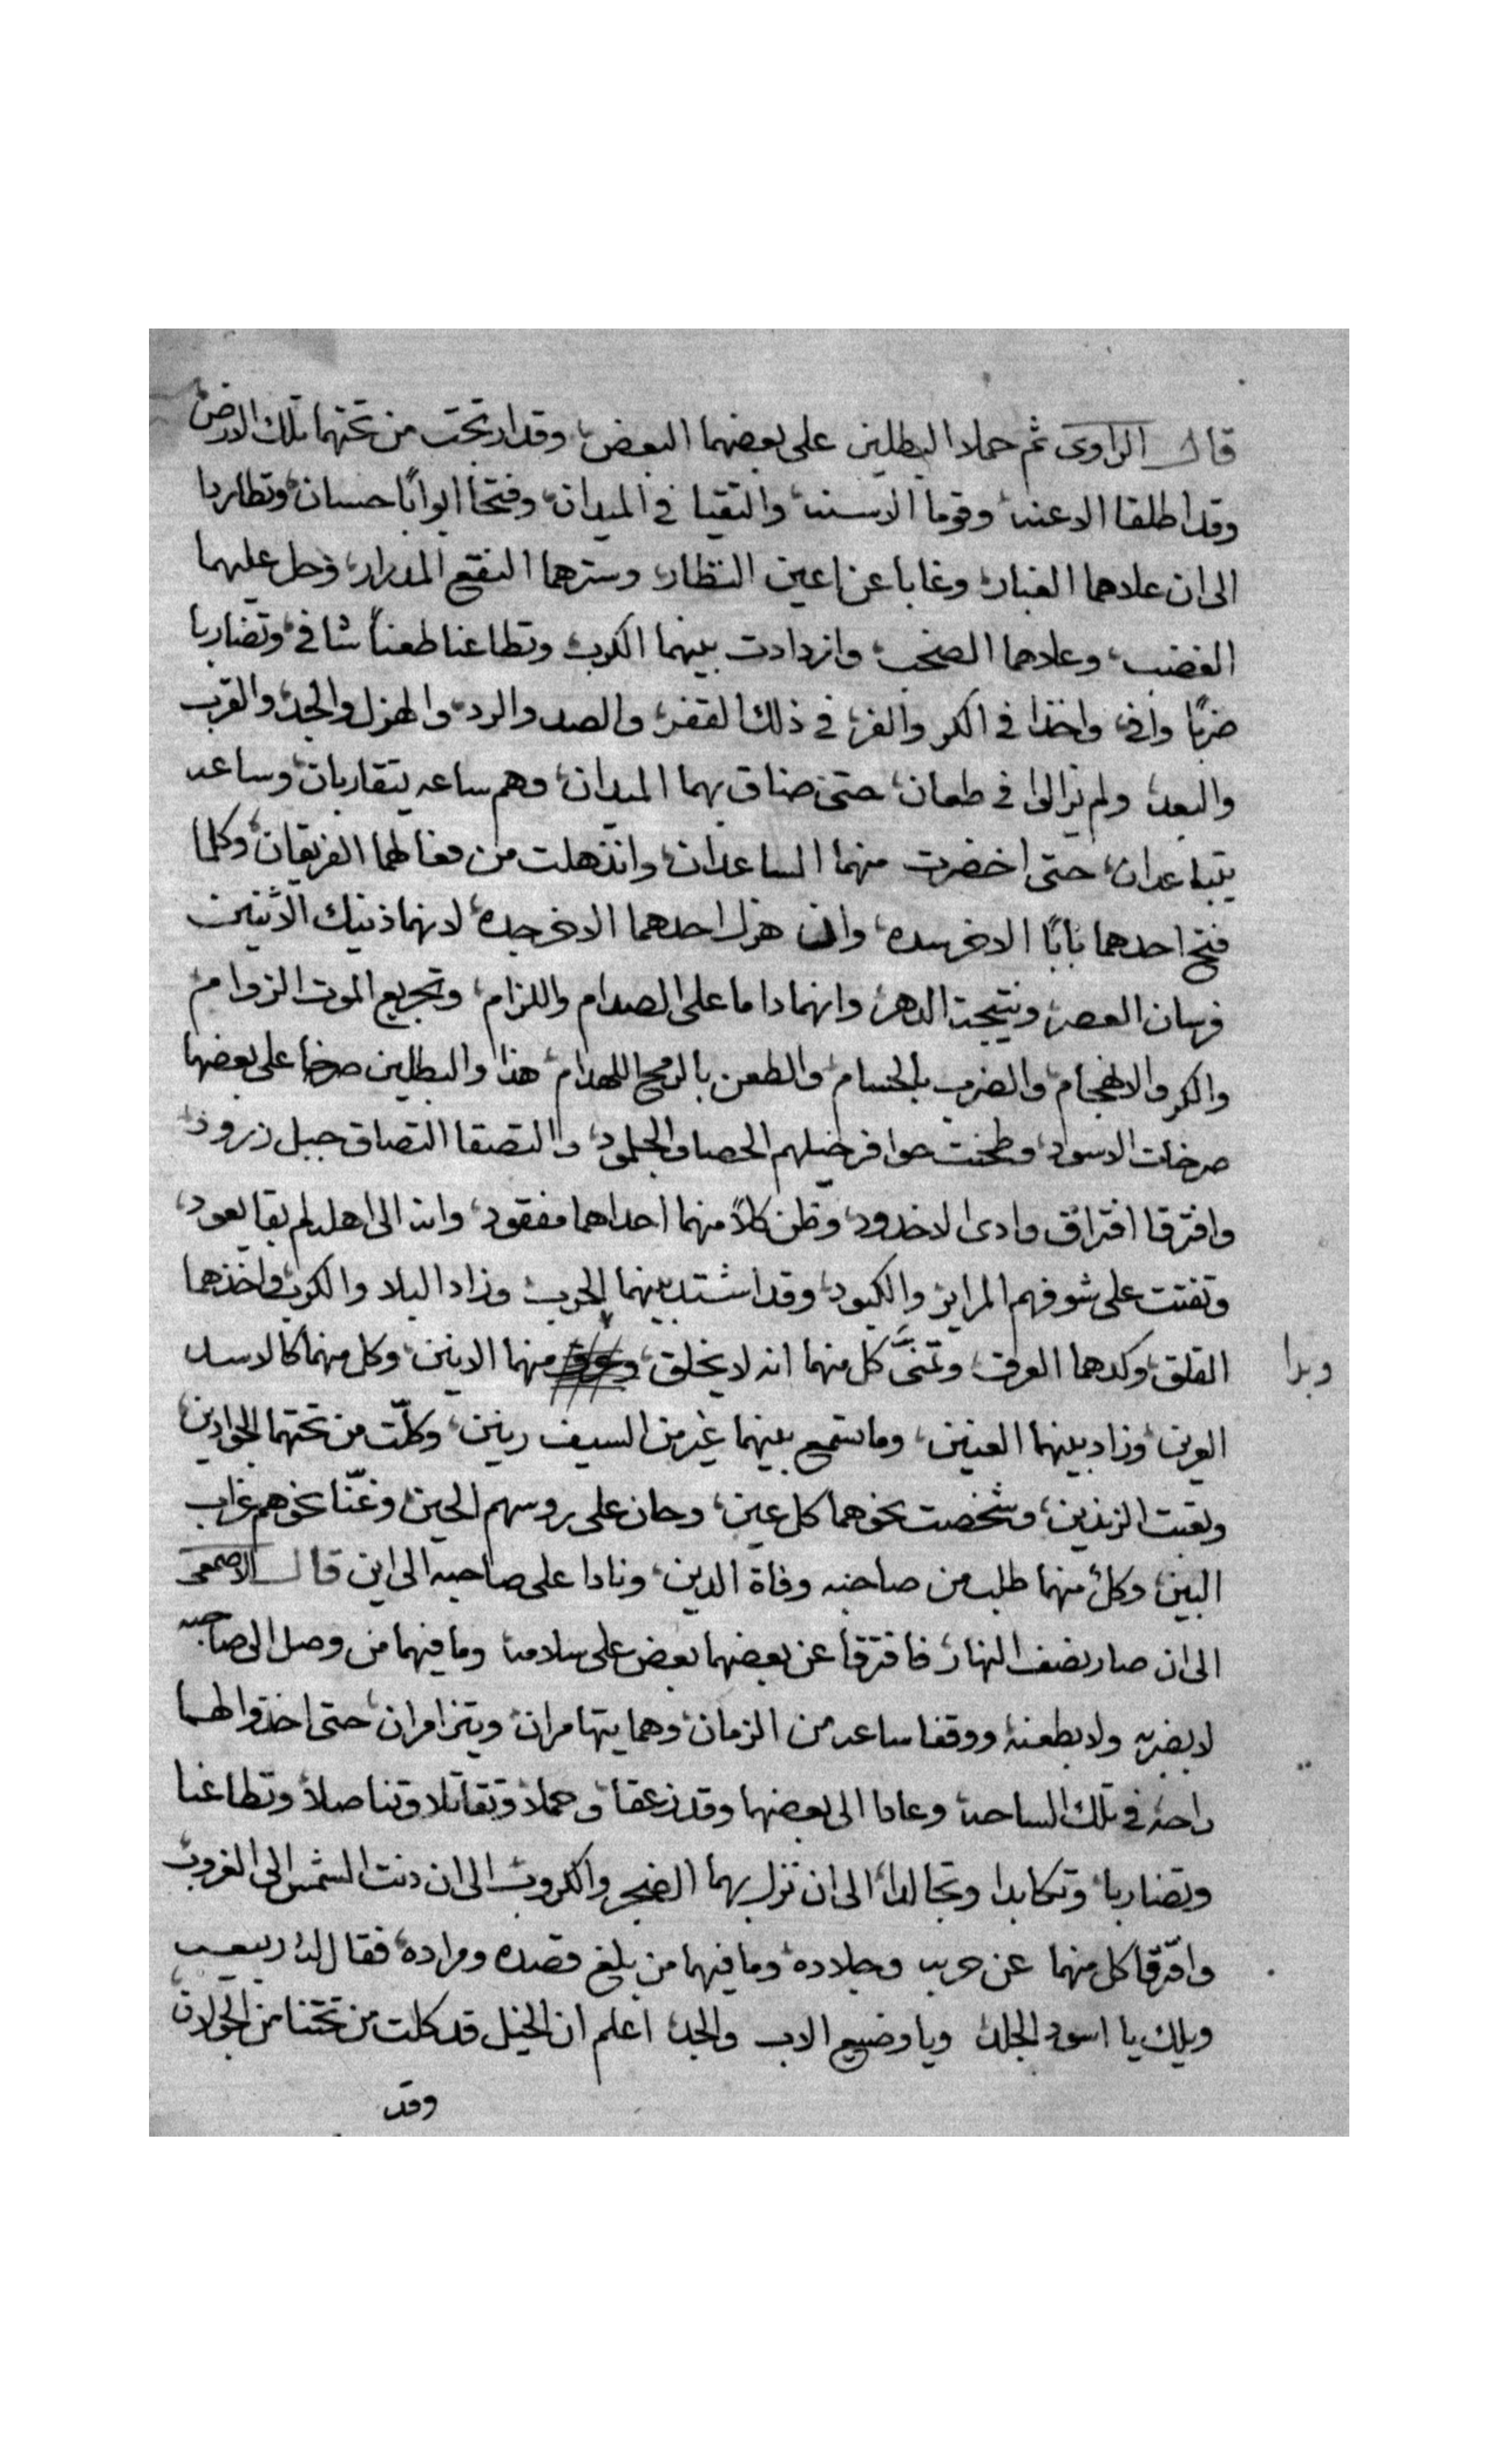 قال الراوى ثم حملا البطلين على بعضهما البعض، وقد ارتجت من تحتهما تلك الارض،
وقد اطلقا الاعنه، وقوما الاسنه، والتقيا في الميدان، وفتحا ابوابًا حسان، وتطاردا
الى ان علاهما الغبار، وغابا عن اعين النظار، وسترهما النقع المدرار، وحل عليهما
الغضب، وعلاهما الصخب، وازدادت بينهما الكرب، وتطاعنا طعناً شافى، وتضاربا
ضربًا وافى، واخذا في الكر والفر، في ذلك القفر، والصد والرد، والهزل والجد، والقرب
والبعد، ولم يزالوا في طعان، حتى ضاق بهما الميدان، وهم ساعه يتقاربان، وساعه
يتباعدان، حتى اخضرت منهما الساعدان، وانذهلت من فعالهما الفريقان، وكلما
فتح احدهما بابًا الاخر سده، وان هزل احدهما الاخر جده، لانهما ذنيك الاثنين
فرسان العصر، ونتيجت الدهر، وانهما داما على الصدام واللزام، وتجريع الموت الزوام،
والكر والاهجام، والضرب بالحسام، والطعن بالرمح اللهدام، هذا والبطلين صرخا على بعضهما
صرخات الاسود، وطحنت حوافر خيلهم الحصا والجلمود، والتصقا التصاق جبل زرود،
وافترقا افتراق وادى الاخدود، وظن كلاً منهما احداهما مفقود، وانه الى اهله لم بقا يعود،
وتفتت على شوفهم المراير والكبود، وقد اشتد بينهما الحرب، وزاد البلا والكرب، واخذهما
القلق، وكدهما العرق، وتمنَّى كل منهما انه لا يخلق، وبدا منهما الانين، وكل منهما كالاسد
العرين، وزاد بينهما العنين، وما تسمع بينهما غير من السيف رنين، وكلّت من تحتهما الجوادين،
وتعبت الزندين، وشخصت نحوهما كل عين، وحان على روسهم الحين، وغنّا نحوهم غراب
البين، وكلٌ منهما طلب من صاحبه وفاة الدين، ونادا على صاحبه الى اين قال الاصمعى
الى ان صار نصف النهار، فافترقا عن بعضهما بعض على سلامه، وما فيهما من وصل الى صاحبه
لا بضربه ولا بطعنه، ووقفا ساعه من الزمان، وهما يتهامران، ويتزامران، حتى اخذوا لهما
راحه، في تلك الساحه، وعادا الى بعضهما وقد زعقا، وحملا، وتقاتلا، وتناصلا، وتطاعنا
وتضاربا، وتكابدا وتجالدا، الى ان نزل بهما الضجر والكروب، الى ان دنت الشمس الى الغروب،
وافترقا كل منهما عن حربه وجلاده، وما فيهما من بلغ قصده ومراده، فقال له ربيعه
ويلك يا اسود الجلد، ويا وضيع الاب والجد، اعلم ان الخيل قد كلت من تحتنا من الجولان،
وقد